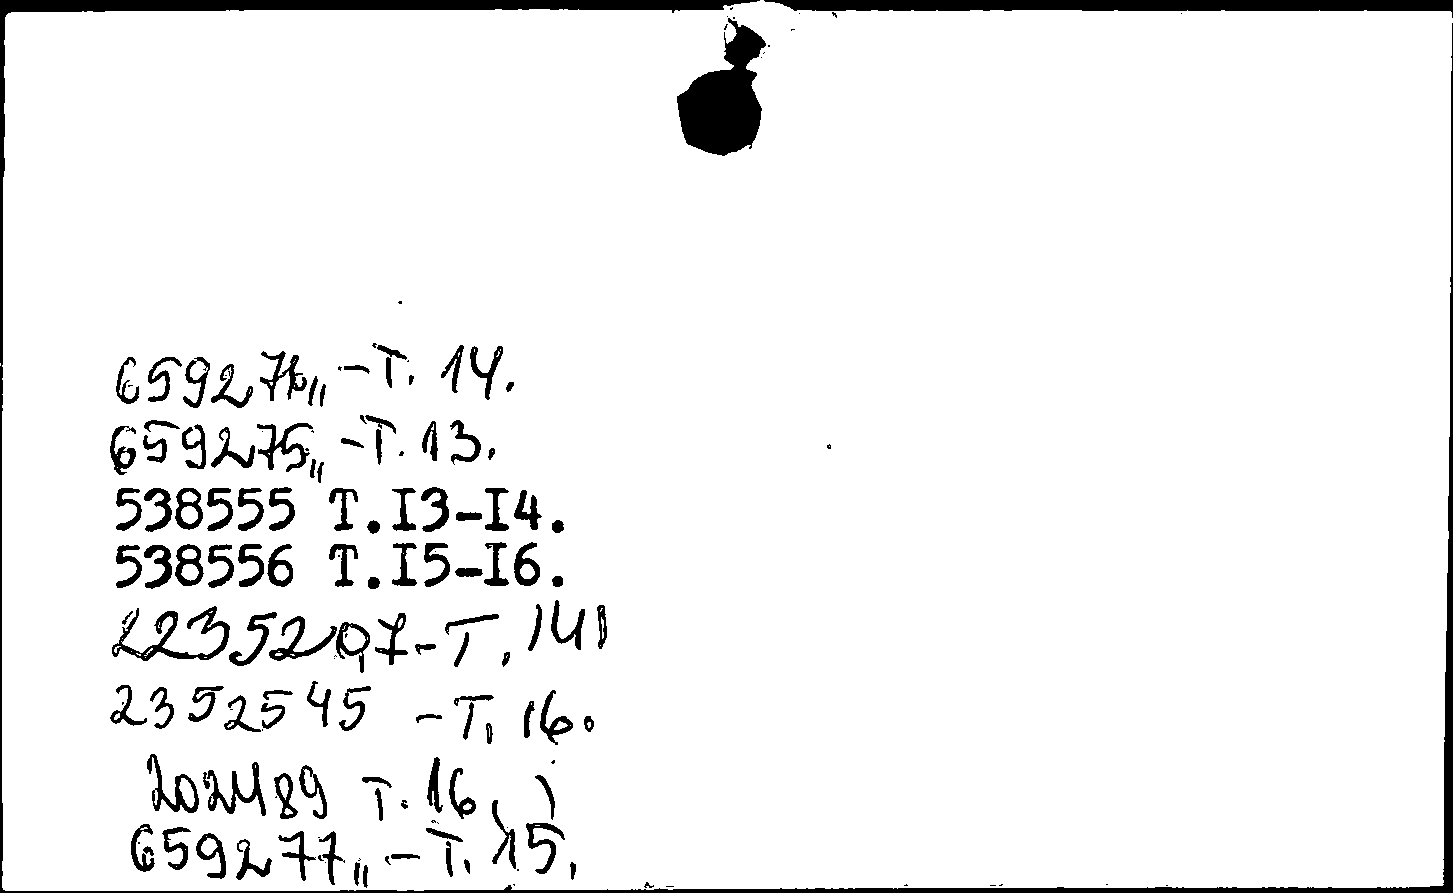 659276„ -Т. 14.
659275„ -Т. 13.
538555 Т.I3-I4.
538556 Т.I5-I6.
2235207-Т. 141
2352545 -Т. 16.
202489 Т. 16.
659277„ -Т. 15.